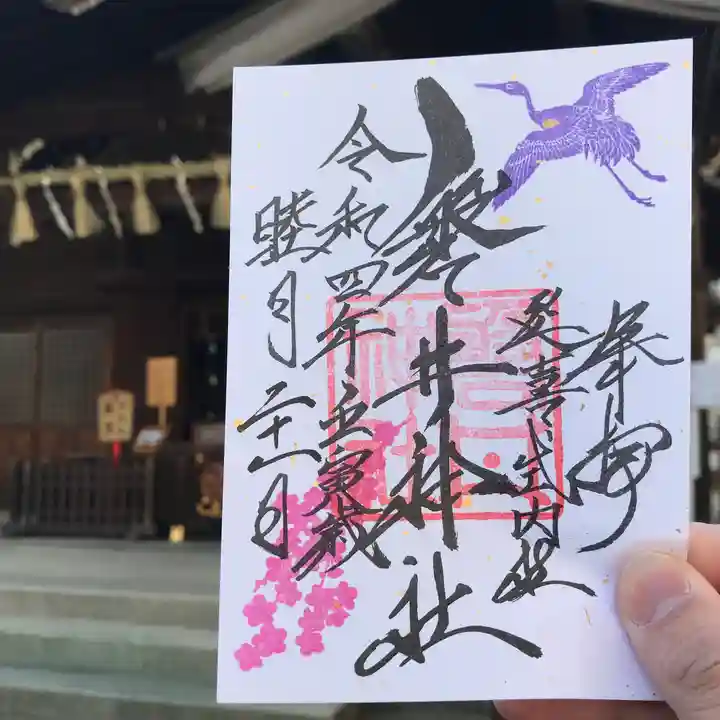 奉拝
延喜式内社
磐井神社
令和四年壬寅歳
睦月二十一日